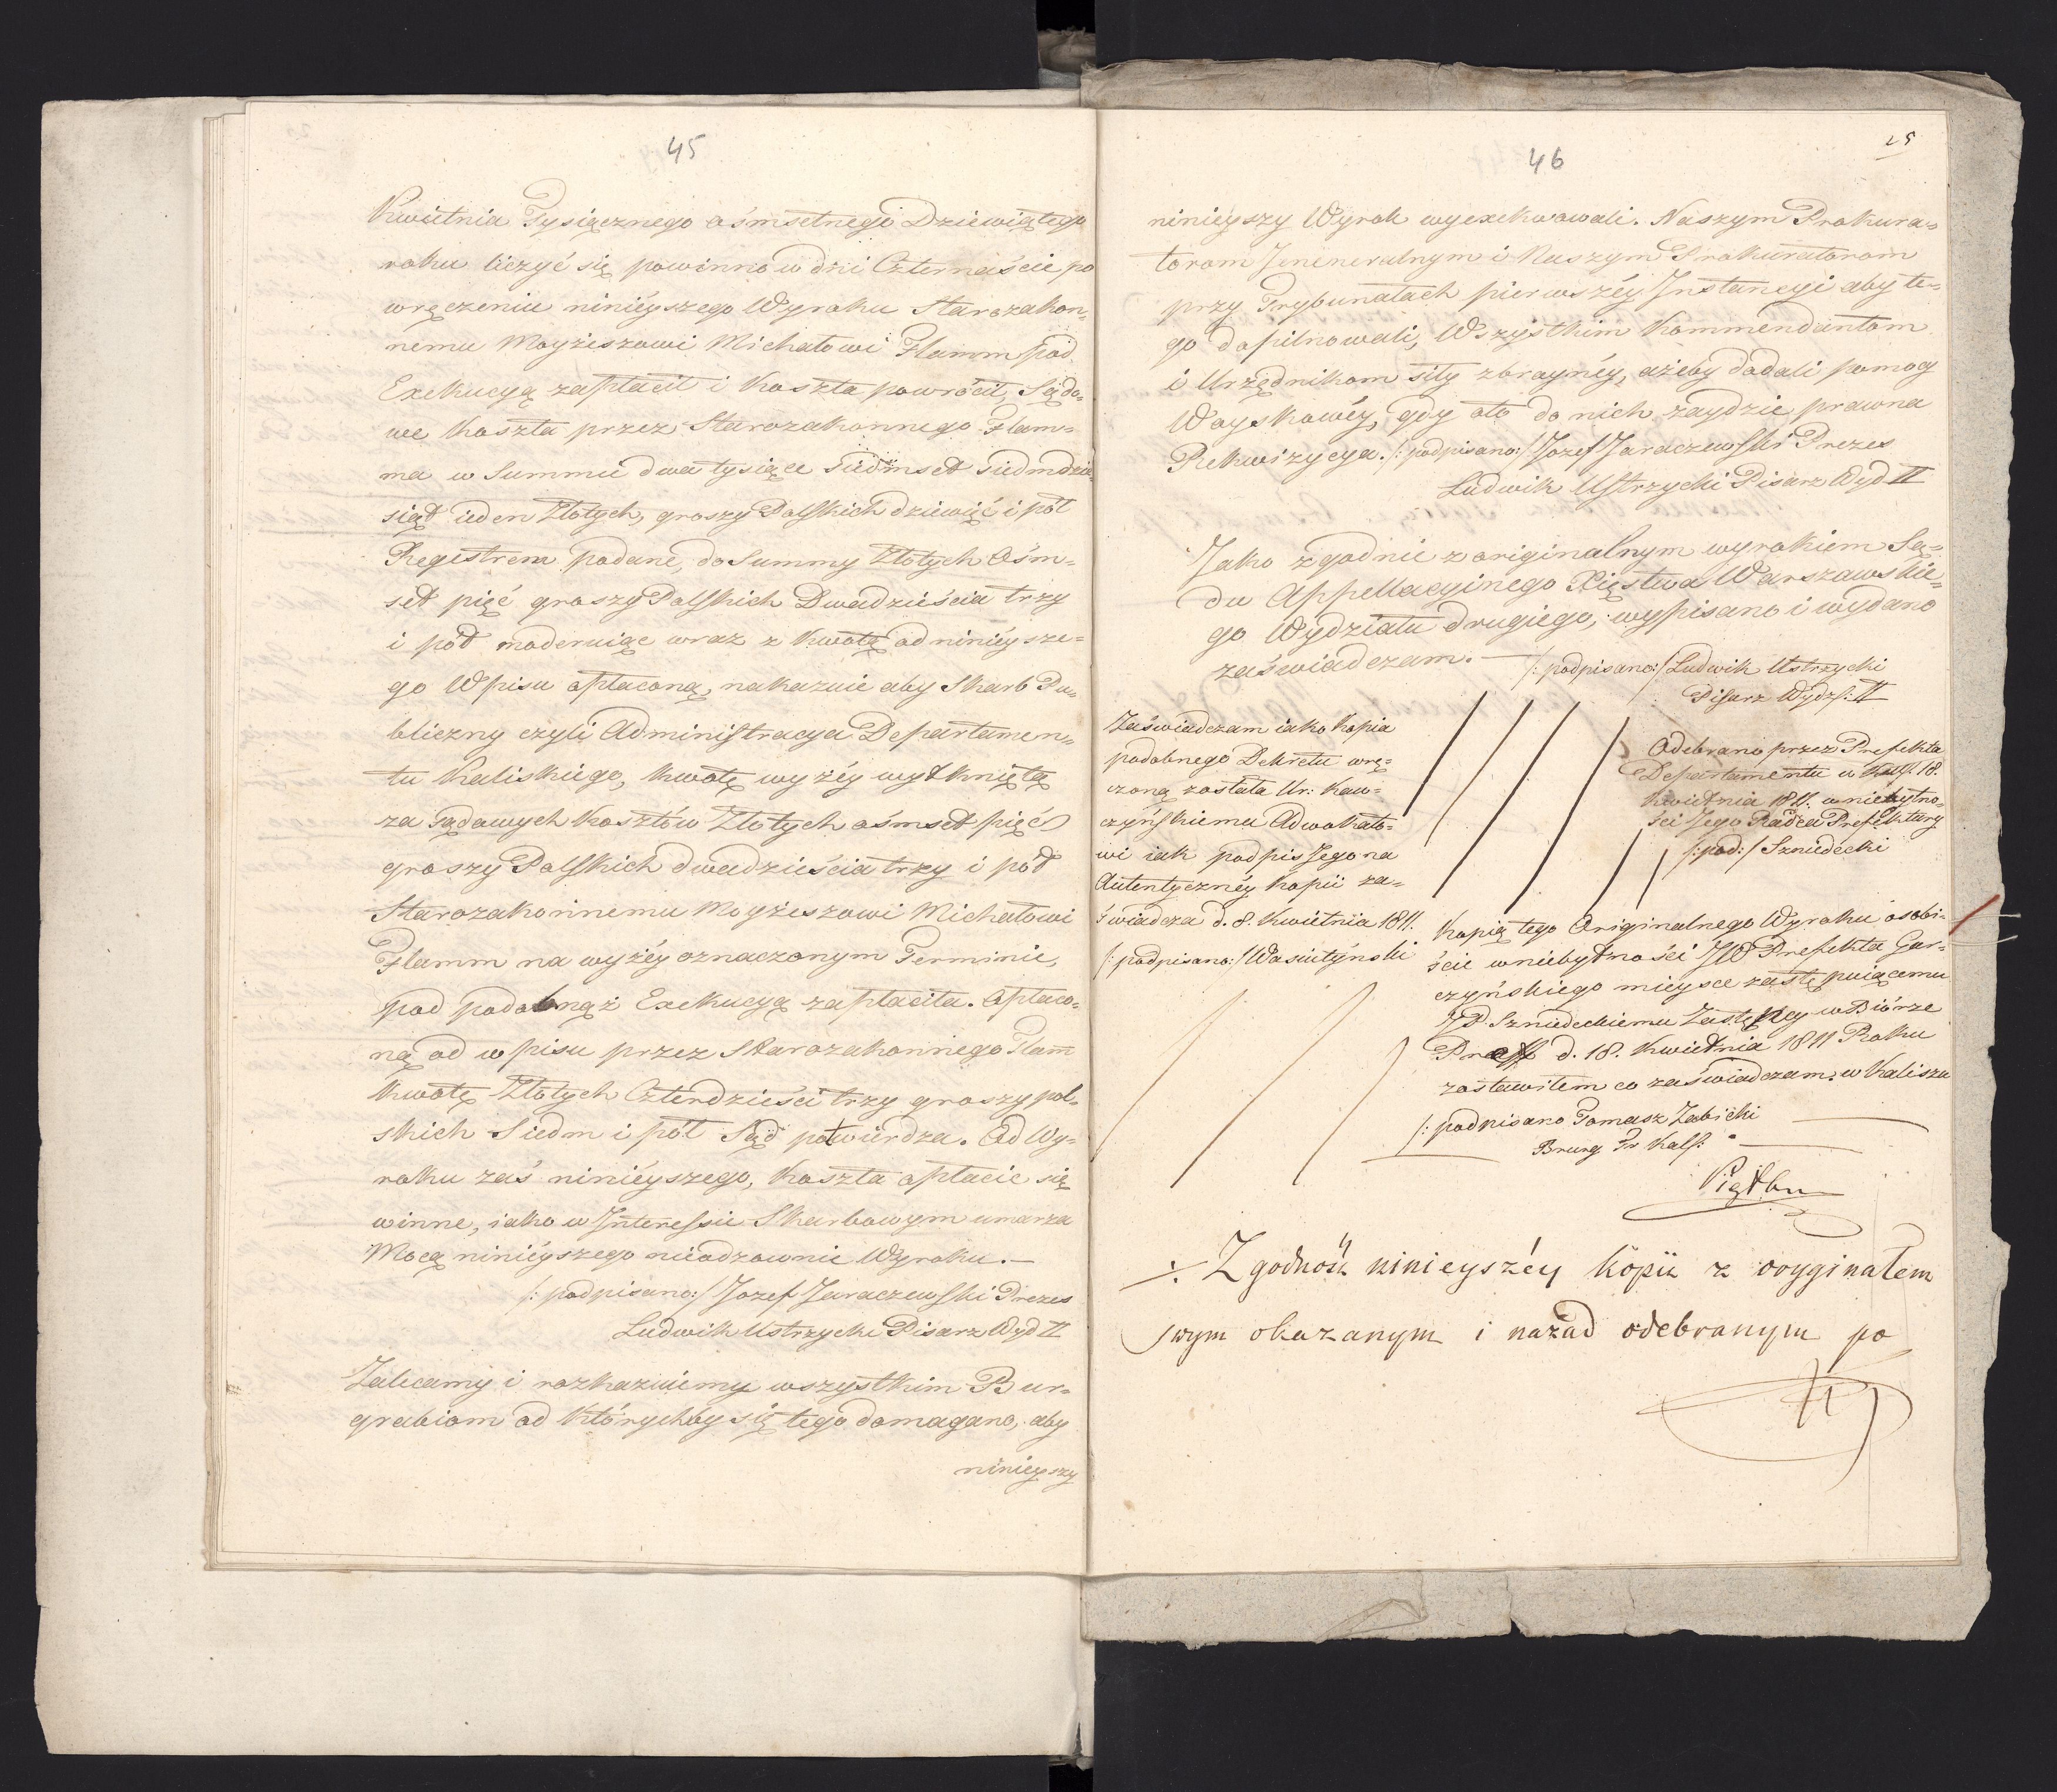 45
Kwietnia Tysiącznego ośmsetnego Dziewiątego
roku liczyć się powinno w dni Czternaście po
wręczeniu ninieyszego Wyroku Starozakon=
nemu Moyżeszowi Michałowi Flamm pod
Exekucyą zapłacił i koszta powrócił, Sądo=
we koszta przez Starozakonnego Flam=
ma w Summie dwa tysiące siedmset siedmdzie
siąt ieden Złotych, groszy Polskich dziewięć i pół
Regestrem podane, do Summy Złotych Ośm=
set pięć groszy Polskich Dwadzieścia trzy
i pół moderuiąc wraz z kwotą od ninieysze=
go Wpisu opłaconą, nakazuie aby Skarb Pu=
bliczny czyli Administracya Departamen=
tu Kaliskiego, kwotę wyżéy wytkniętą
za sądowych kosztów Złotych ośmset pięć
groszy Polskich dwadzieścia trzy i pół
Starozakonnemu Moyżeszowi Michałowi
Flamm na wyżéy oznaczonym Terminie,
pod podobnąż Exekucyą zapłaciła. Opłaco=
ną od wpisu przez Starozakonnego Flam̄
kwotę Złotych Czterdzieści trzy groszy pol=
skich Siedm i pół Sąd potwierdza. Od Wy=
roku zaś ninieyszego, koszta opłacić się
winne, iako w Interessie Skarbowym umarza
Mocą ninieyszego nieodzownie Wyroku.—
/: podpisano:/ Jozef Jaraczewski Prezes
Ludwik Ustrzycki Pisarz Wyd II
Zalecamy i rozkazuiemy wszystkim Bur=
grabiom od którychby się tego domagano, aby
ninieyszy
46
25
ninieyszy Wyrok wyexekwowali. Naszym Prokura=
torom Jeneneralnym i Naszym Prokuratorom
przy Trybunałach pierwszéy Instancyi aby te=
go dopilnowali, Wszystkim Kommendantom
i Urzędnikom siły zbroynéy, ażeby dodali pomog
Woyskowéy, gdy oto do nich zaydzie prawna
Rekwizycya. /: podpisano:/ Jozef Jaraczewski Prezes
Ludwik Ustrzycki Pisarz Wyd II
Jako zgodnie z originalnym wyrokiem Są=
du Appellacyinego Xięstwa Warszawskie=
go Wydziału drugiego, wypisano i wydano
zaświadczam.—
/: podpisano:/ Ludwik Ustrzycki
Pisarz Wydz: II
Zaświadczam iako kopia
podobnego Dekretu wrę=
czoną została Ur: Kaw=
czyńskiemu Adwokato=
wi iak podpis Jego na
Autentycznéy kopii za=
świadcza d. 8. Kwietnia 1811.
/: podpisano:/ Wasiutyński
Odebrano przez Prefekta
Departamentu w Kalf. 18.
Kwietnia 1811. w niebytno=
ści Jego Radca Prefektury
/: pod:/ Szniedecki
Kopią tego Originalnego Wyroku osobi=
ście w niebytności JW Prefekta Gar=
czyńskiego mieysce zastępuiącemu
JP. Szniedeckiemu Zastępcy w Biórze
d. 18. Kwietnia 1811 Roku
zostawiłem co zaświadczam. w Kaliszu
/: podpisano Tomasz Zabicki
Burg Kals:
÷ Zgodność ninieyszéy kopii z oryginałem
swym okazanym i nazad odebranym po